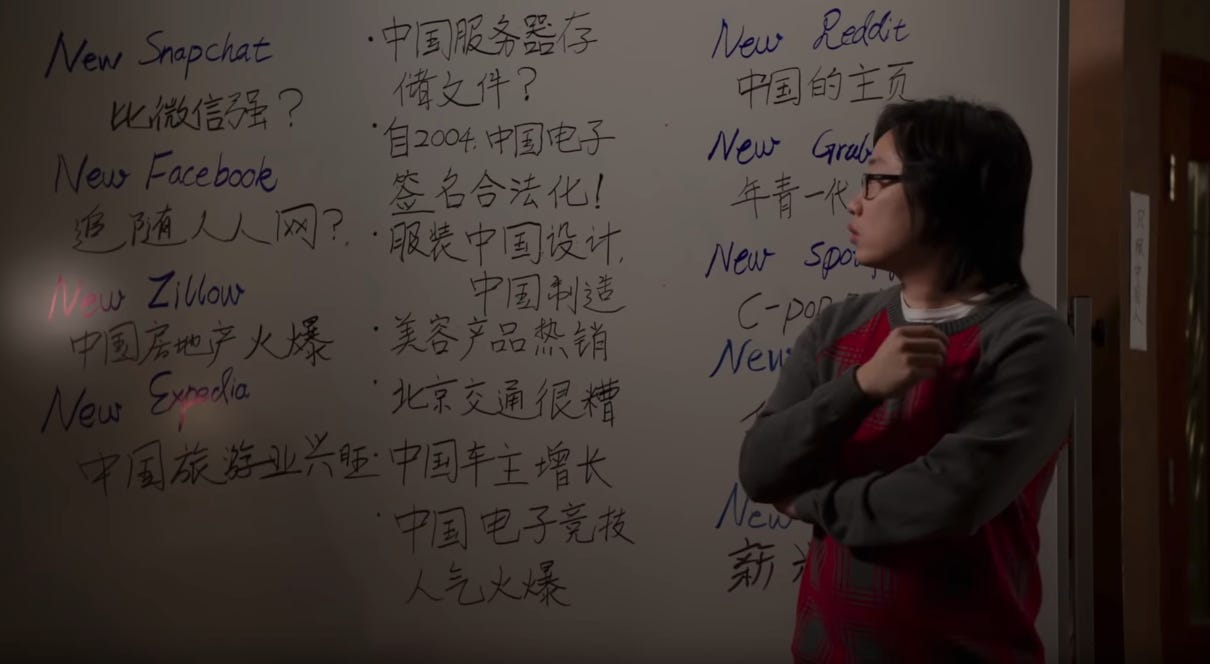 New Snapchat
比微信强？
New Facebook
追随人人网？
New Zillow
中国房地产火爆
New Expedia
中国旅游业兴旺
·中国服务器存
储文件？
·自2004.中国电子
签名合法化！
·服装中国设计,
中国制造
·美容产品热销
·北京交通很糟
·中国车主增长
·中国电子竞技
人气火爆
New Reddit
中国的主页
New
年青一代
New
C-pop
New
New
新